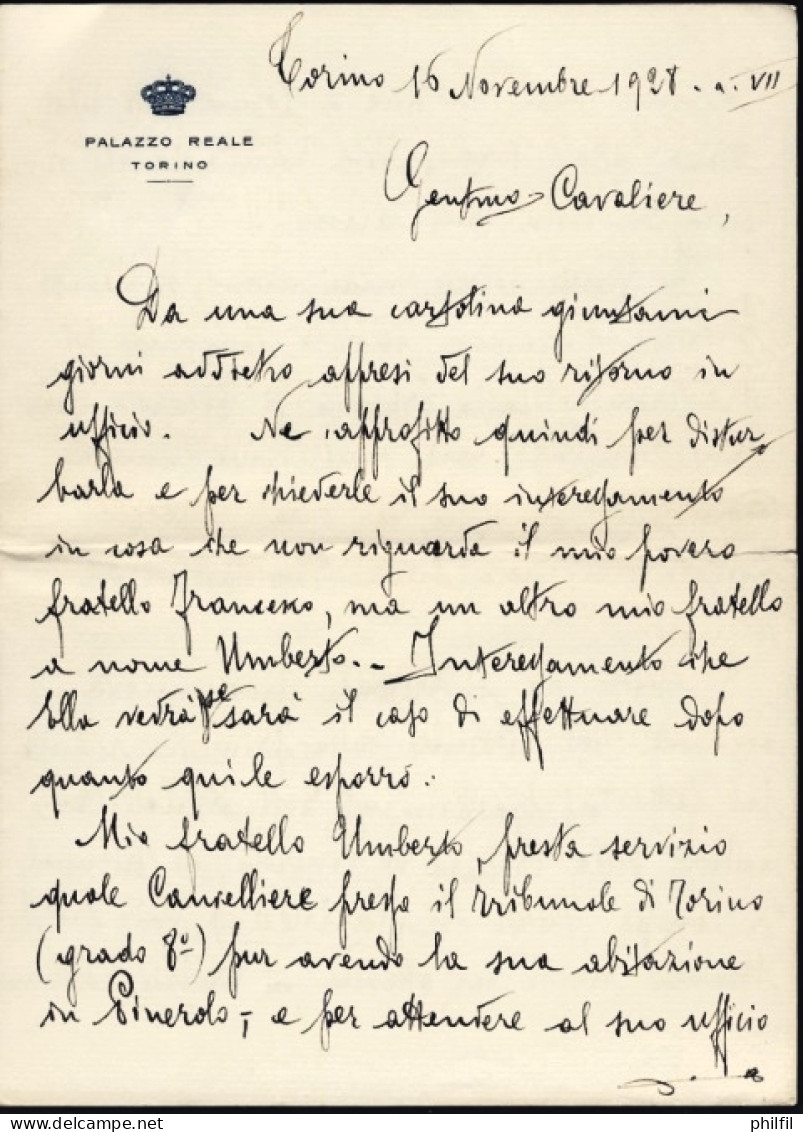 Torino 16 Novembre 1928 - a. VII
PALAZZO REALE
TORINO
Gentmo Cavaliere,
Da una sua cartolina giuntami
giorni addietro appresi del suo ritorno in
ufficio. Ne approfitto quindi per distur
barla e per chiederle il suo interessamento
in cosa che non riguarda il mio povero
fratello Francesco, ma un altro mio fratello
a nome Umberto. - Interessamento che
Ella vedrà se sarà il caso di effettuare dopo
quanto qui le esporrò.
Mio fratello Umberto, presta servizio
quale Cancelliere presso il Tribunale di Torino
(grado 8º) pur avendo la sua abitazione
in Pinerolo -, e per attendere al suo ufficio
philfil